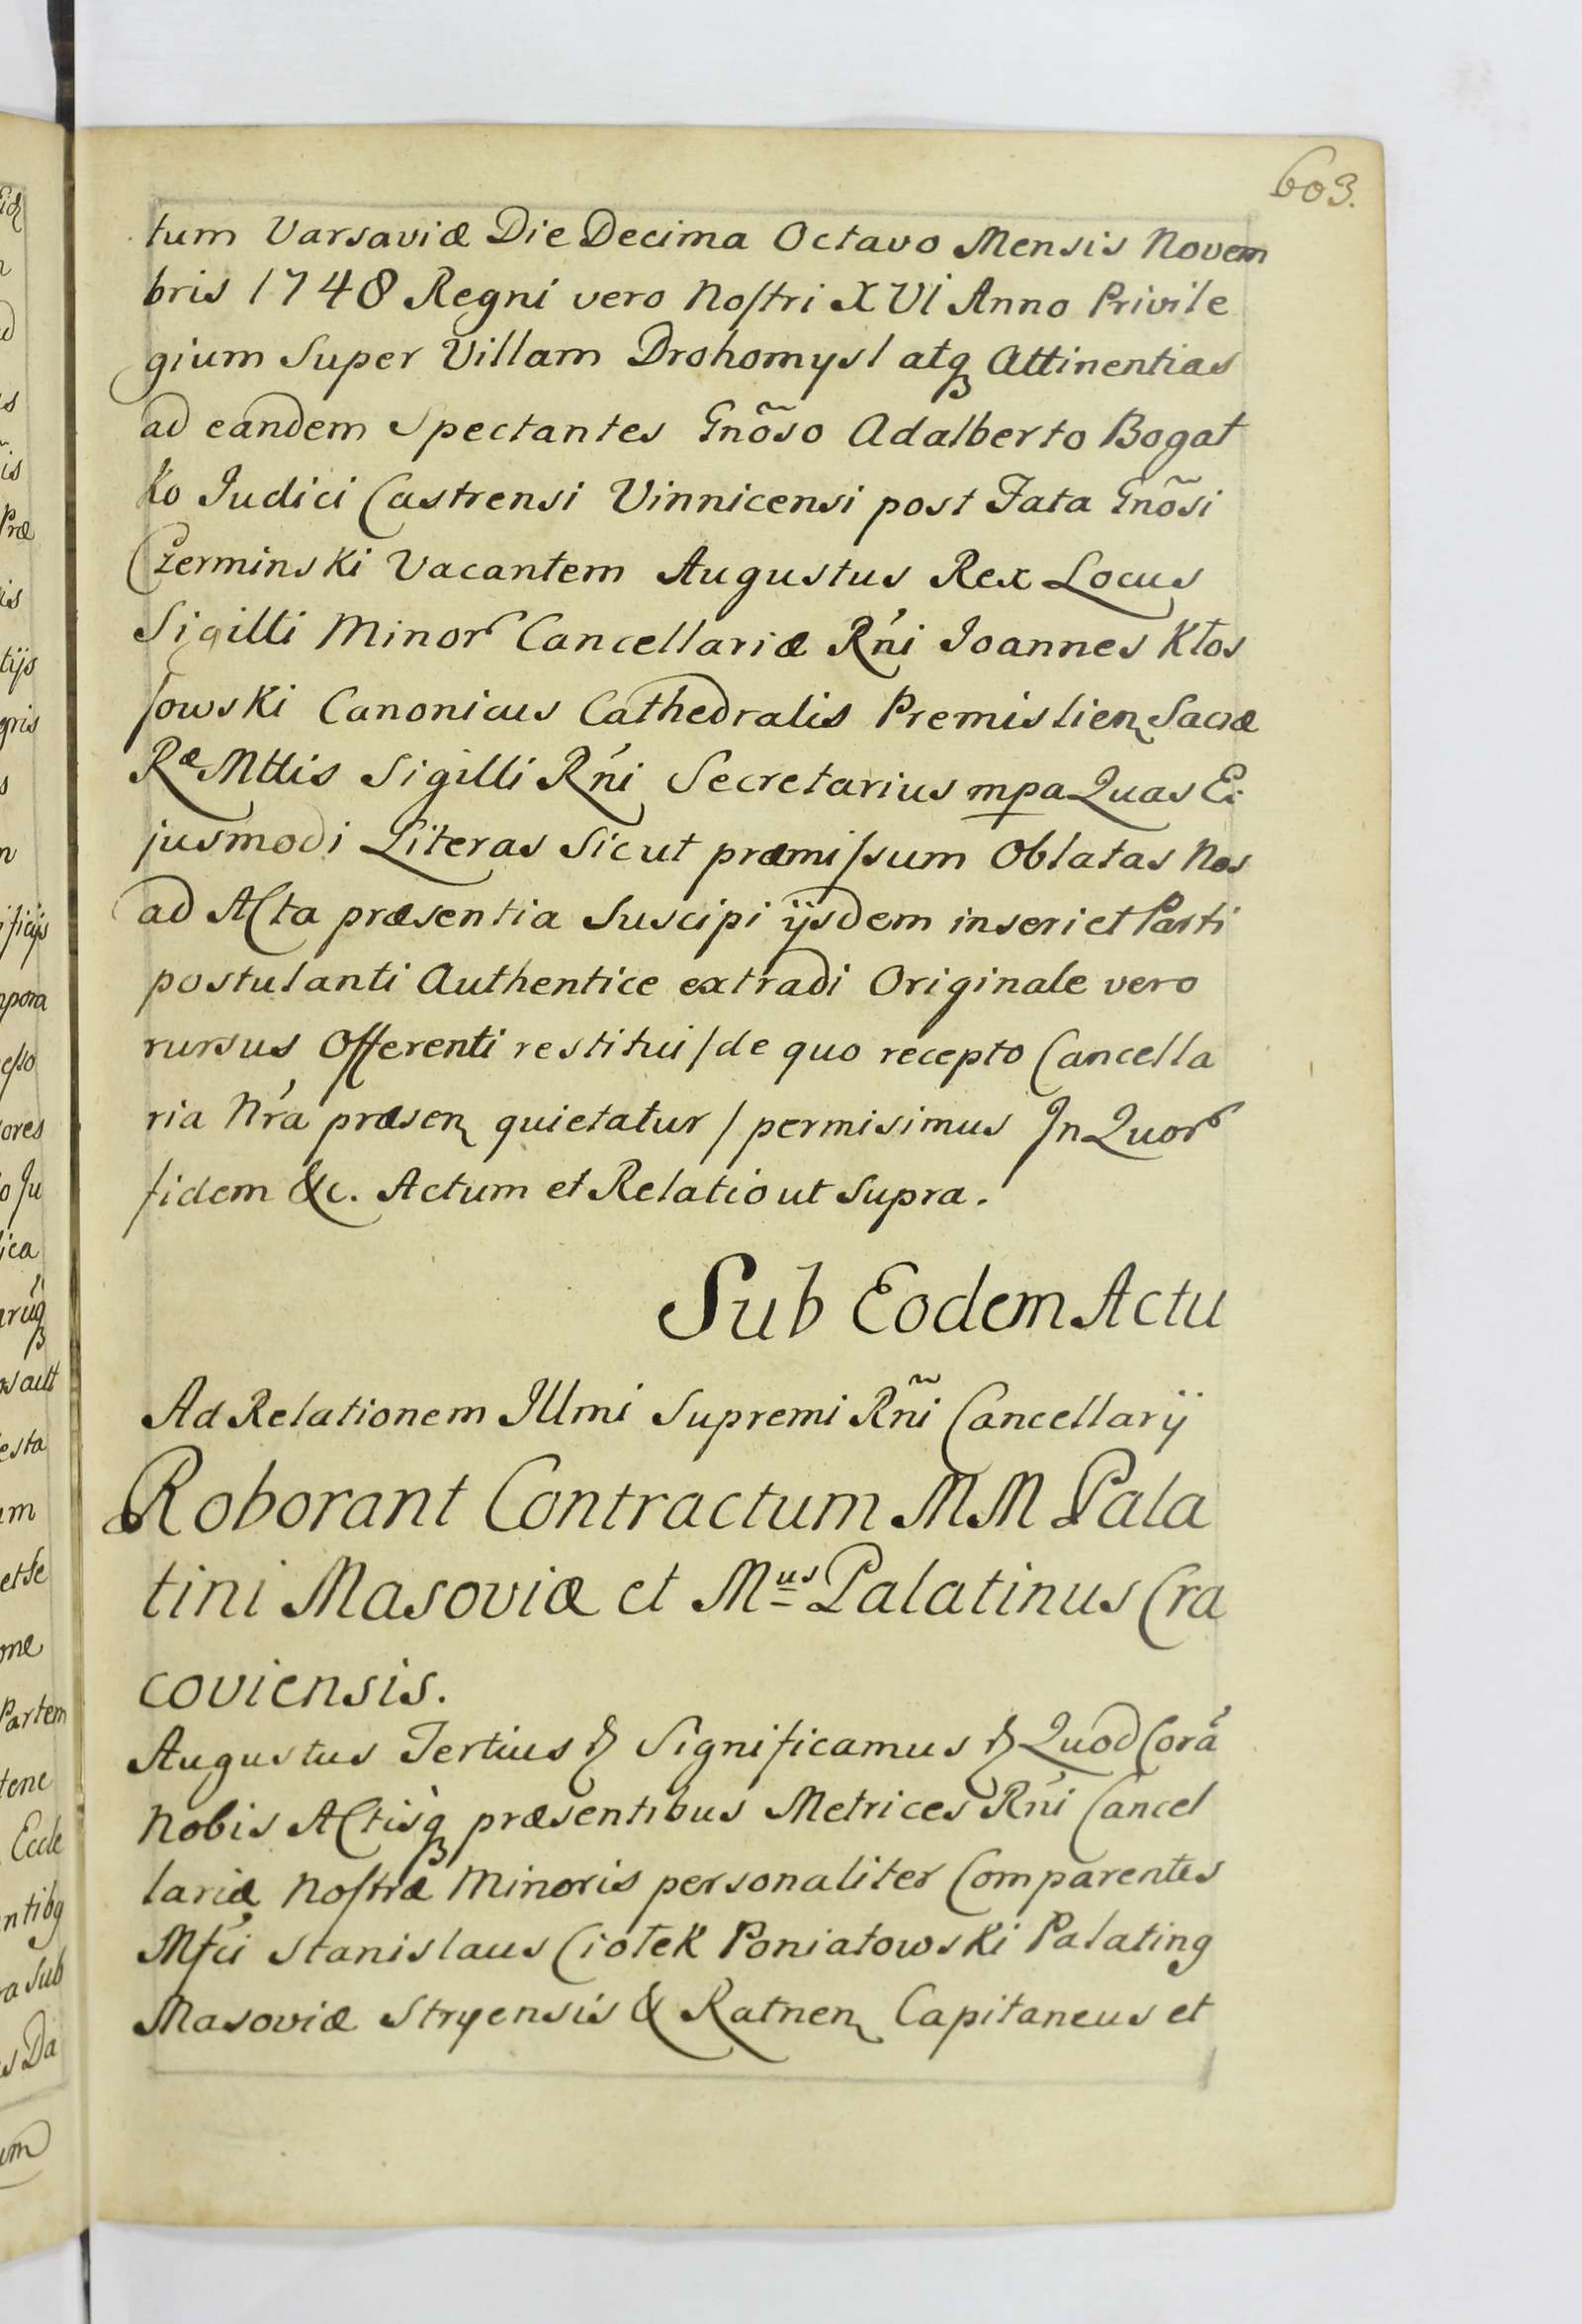 603.
tum Varsaviæ Die Decima Octavo Mensis Novem
bris 1748 Regni vero Nostri XVI Anno Privile
gium Super Villam Drohomysl atq₃ Attinentias
ad eandem Spectantes Gnõso Adalberto Bogat
ko Judici Castrensi Vinnicensi post Fata Gnõsi
Czerminski Vacantem Augustus Rex Locus
Sigilli Minor Cancellariæ Rńi Joannes Kłos
sowski Canonicus Cathedralis Premislien Sacræ
Ræ Mttis Sigilli Rńi Secretarius mpa Quas Ei
jusmodi Literas Sicut præmissum Oblatas Nos
ad Acta præsentia Suscipi ijsdem inseri et Parti
postulanti Authentice extradi Originale vero
rursus Offerenti restitui /de quo recepto Cancella
ria Nŕa præsen quietatur / permisimus In Quor
fidem &c. Actum et Relatio ut Supra.
Sub Eodem Actu
Ad Relationem Illmi Supremi Rñi Cancellarij
Roborant Contractum MM Pala
tini Masoviæ et Mus Palatinus Cra
coviensis.
Augustus Tertius & Significamus & Quod Corá
Nobis Actisq₃ præsentibus Metrices Rńi Cancel
lariæ Nostræ Minoris personaliter Comparentes
Mfći Stanislaus Ciołek Poniatowski Palatin9
Masoviæ Stryensis & Ratnen Capitaneus et